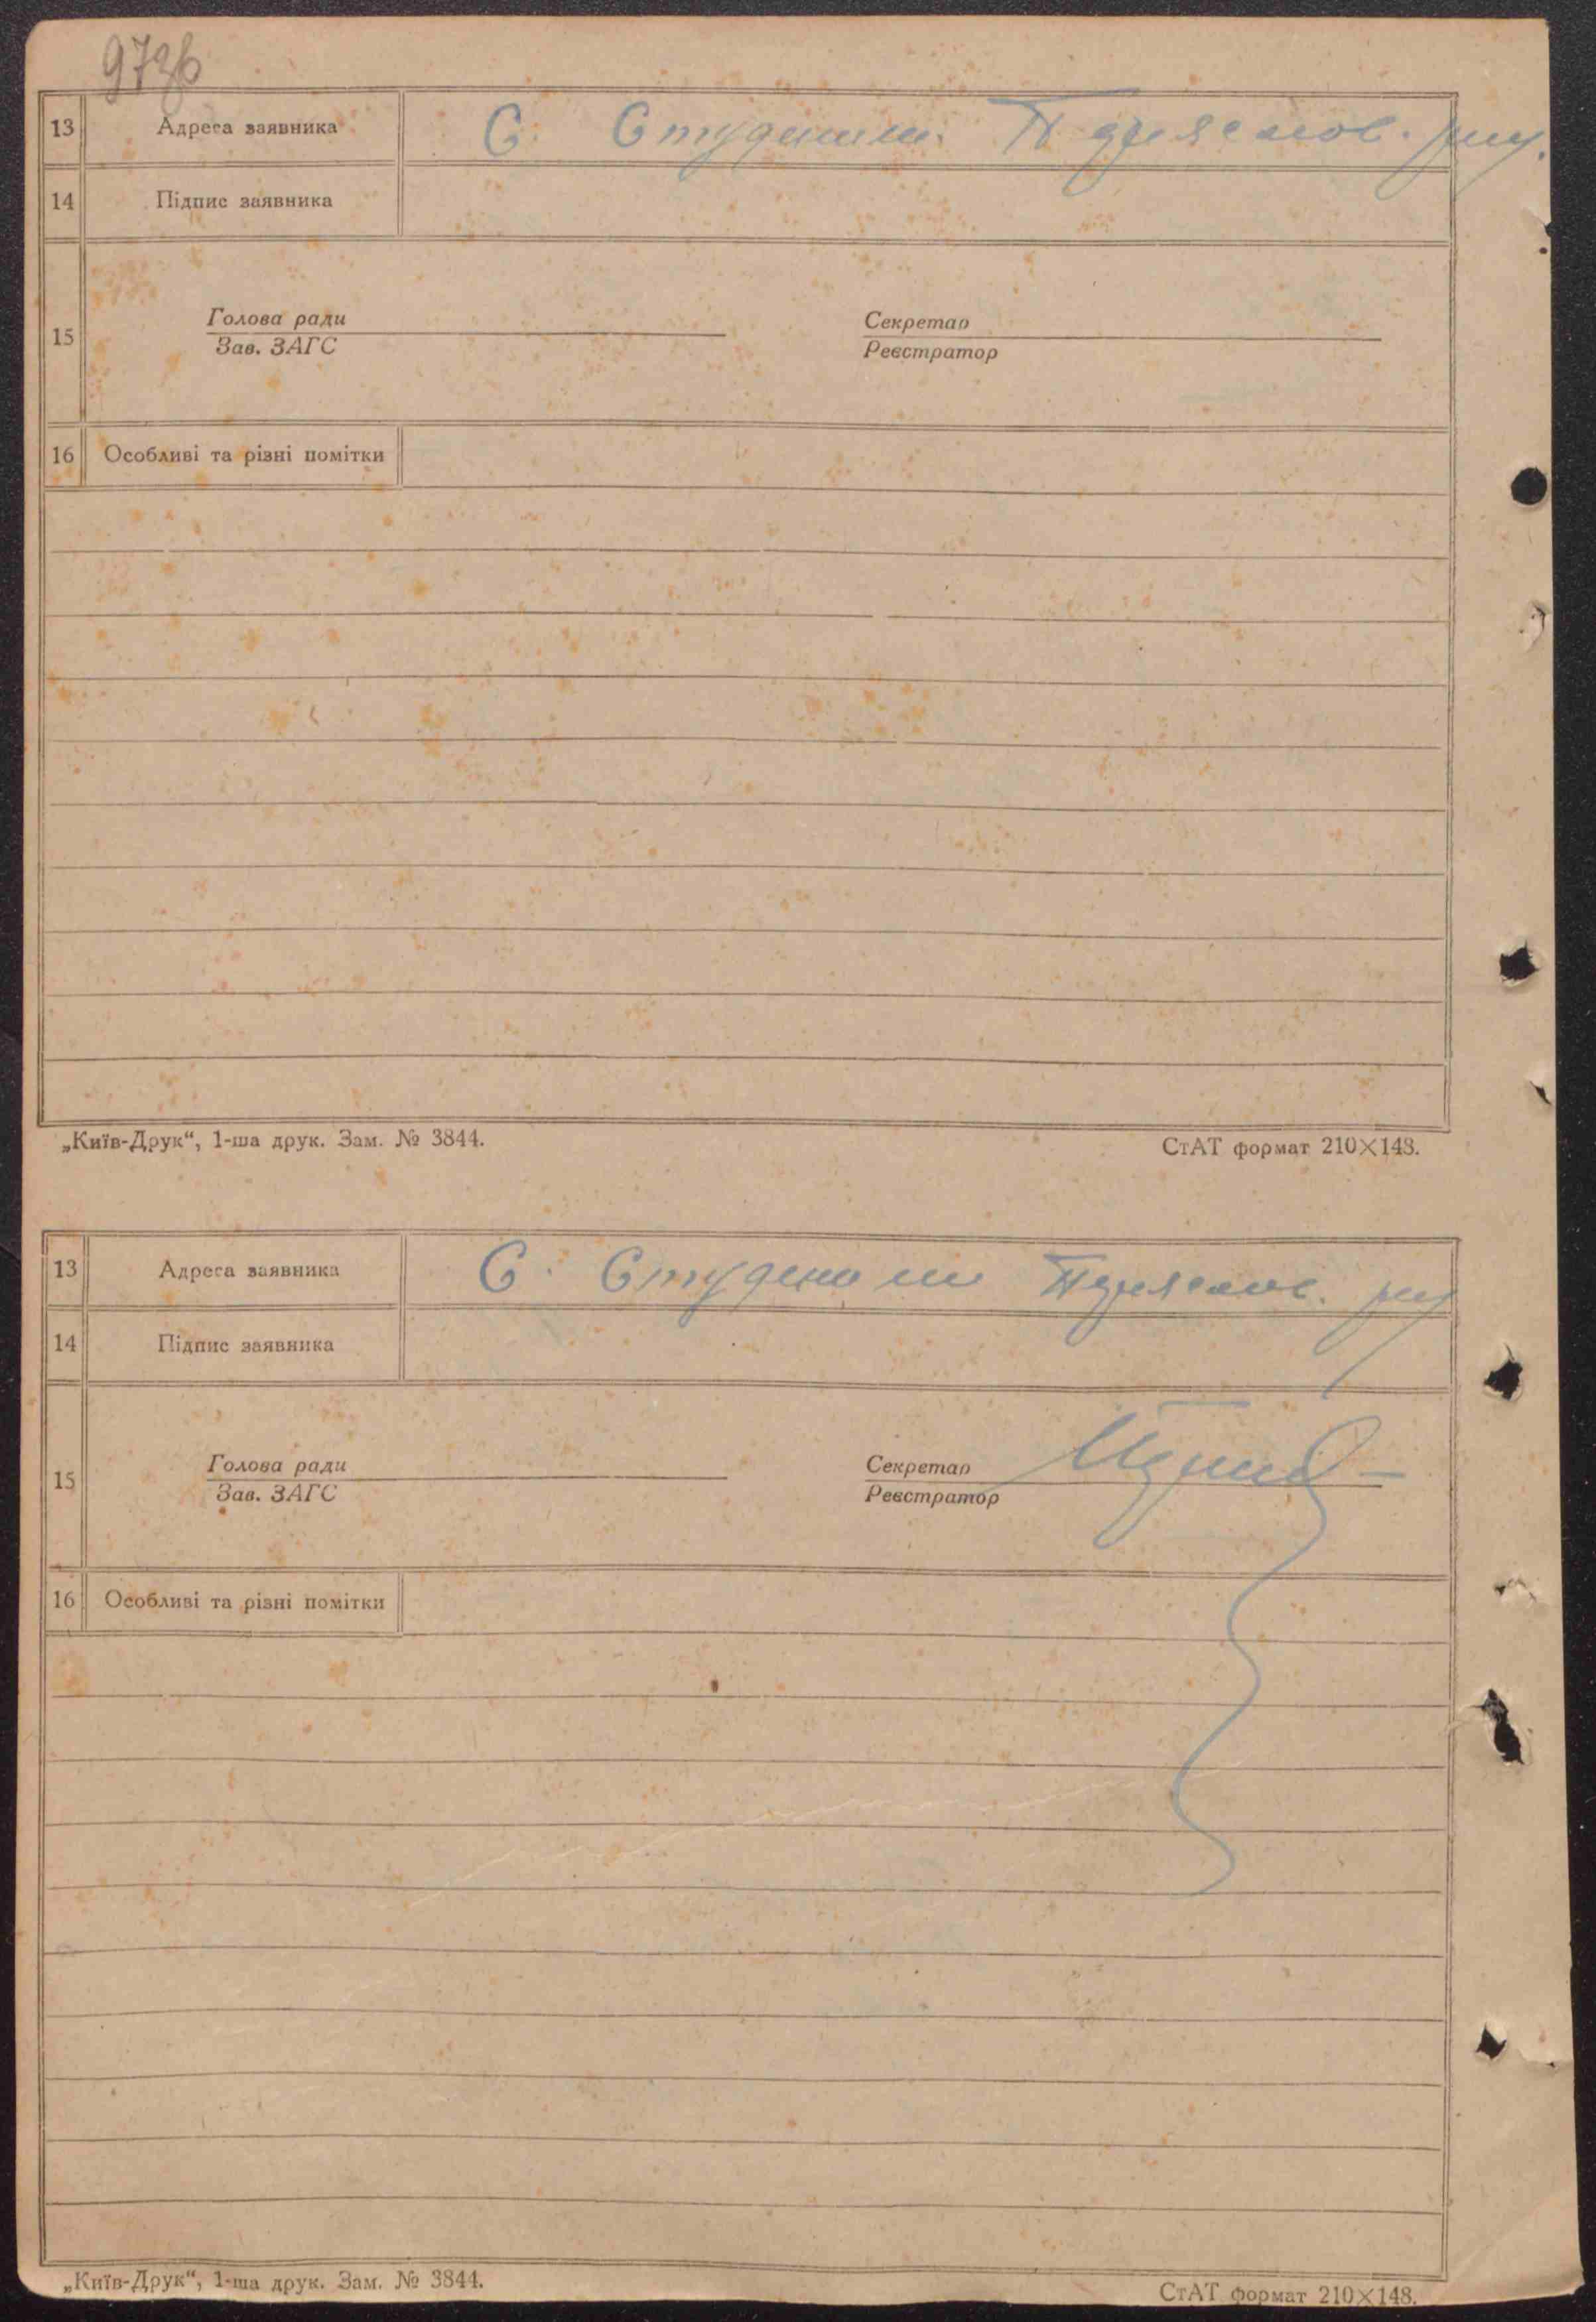 9736
13 Адреса заявника С. Студеники Переяслов. р-ну.
14 Підпис заявника
15 Голова ради Секретар
Зав. ЗАГС Реєстратор
16 Особливі та різні помітки
„Київ-Друк“, 1-ша друк. Зам. № 3844. СтАТ формат 210×148.
13 Адреса заявника С. Студеники Переяслов. р-ну
14 Підпис заявника
15 Голова ради Секретар
Зав. ЗАГС Реєстратор
16 Особливі та різні помітки
„Київ-Друк“, 1-ша друк. Зам. № 3844. СтАТ формат 210×148.